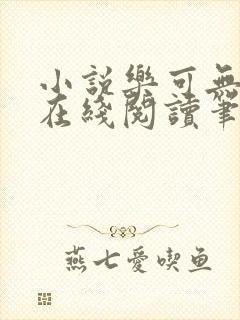 小説樂可無
在綫閱讀筆
燕七愛喫鱼